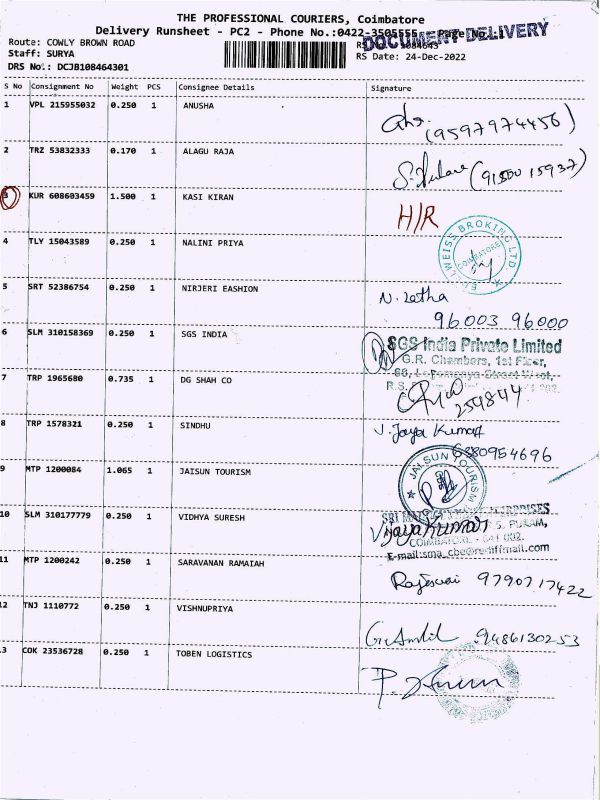 THE PROFESSIONAL COURIERS, Coimbatore
Delivery Runsheet - PC2 - Phone No.:0422-3505555 Page No.:1
DOCUMENT DELIVERY
Route: COWLY BROWN ROAD
Staff: SURYA
DRS No.: DCJB108464301
RS Date: 24-Dec-2022
S No Consignment No Weight PCS Consignee Details Signature
1 VPL 215955032 0.250 1 ANUSHA
(9597974456)
2 TRZ 53832333 0.170 1 ALAGU RAJA
(91500 15937)
3 KUR 608603459 1.500 1 KASI KIRAN
H/R
4 TLY 15043589 0.250 1 NALINI PRIYA
EDELWEISS BROKING LTD
COIMBATORE
5 SRT 52386754 0.250 1 NIRJERI EASHION
N. Letha
96003 96000
6 SLM 310158369 0.250 1 SGS INDIA
SGS India Private Limited
G.R. Chambers, 1st Floor,
7 TRP 1965680 0.735 1 DG SHAH CO
254844
8 TRP 1578321 0.250 1 SINDHU
V. Jaya Kumar
6380954696
9 MTP 1200084 1.065 1 JAISUN TOURISM
JAISUN TOURISM
10 SLM 310177779 0.250 1 VIDHYA SURESH
Vijayakumar
E-mail:sma_cbe@rediffmail.com
11 MTP 1200242 0.250 1 SARAVANAN RAMAIAH
9790717422
12 TNJ 1110772 0.250 1 VISHNUPRIYA
9486130253
13 COK 23536728 0.250 1 TOBEN LOGISTICS